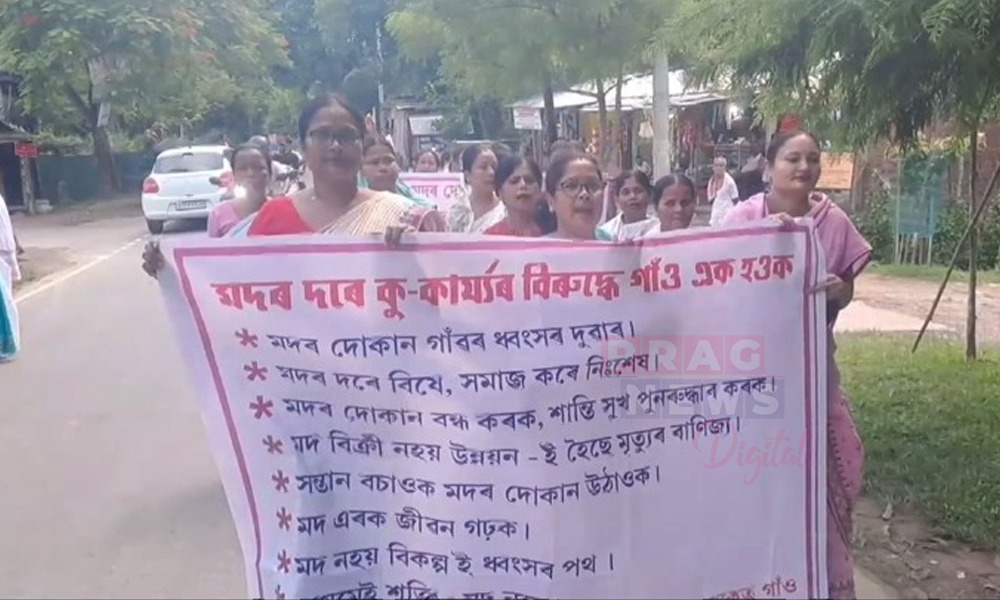 মদৰ দৰে কু-কাৰ্য্যৰ বিৰুদ্ধে গাঁও এক হওক
* মদৰ দোকান গাঁৱৰ ধ্বংসৰ দুৱাৰ।
* মদৰ দৰে বিষে, সমাজ কৰে নিঃশেষ।
* মদৰ দোকান বন্ধ কৰক, শান্তি সুখ পুনৰুদ্ধাৰ কৰক।
* মদ বিক্ৰী নহয় উন্নয়ন - ই হৈছে মৃত্যুৰ বাণিজ্য।
* সন্তান বচাওক মদৰ দোকান উঠাওক।
* মদ এৰক জীৱন গঢ়ক।
* মদ নহয় বিকল্প ই ধ্বংসৰ পথ।
মদ
গাঁও
মদৰ
PRAG
NEWS
Digital